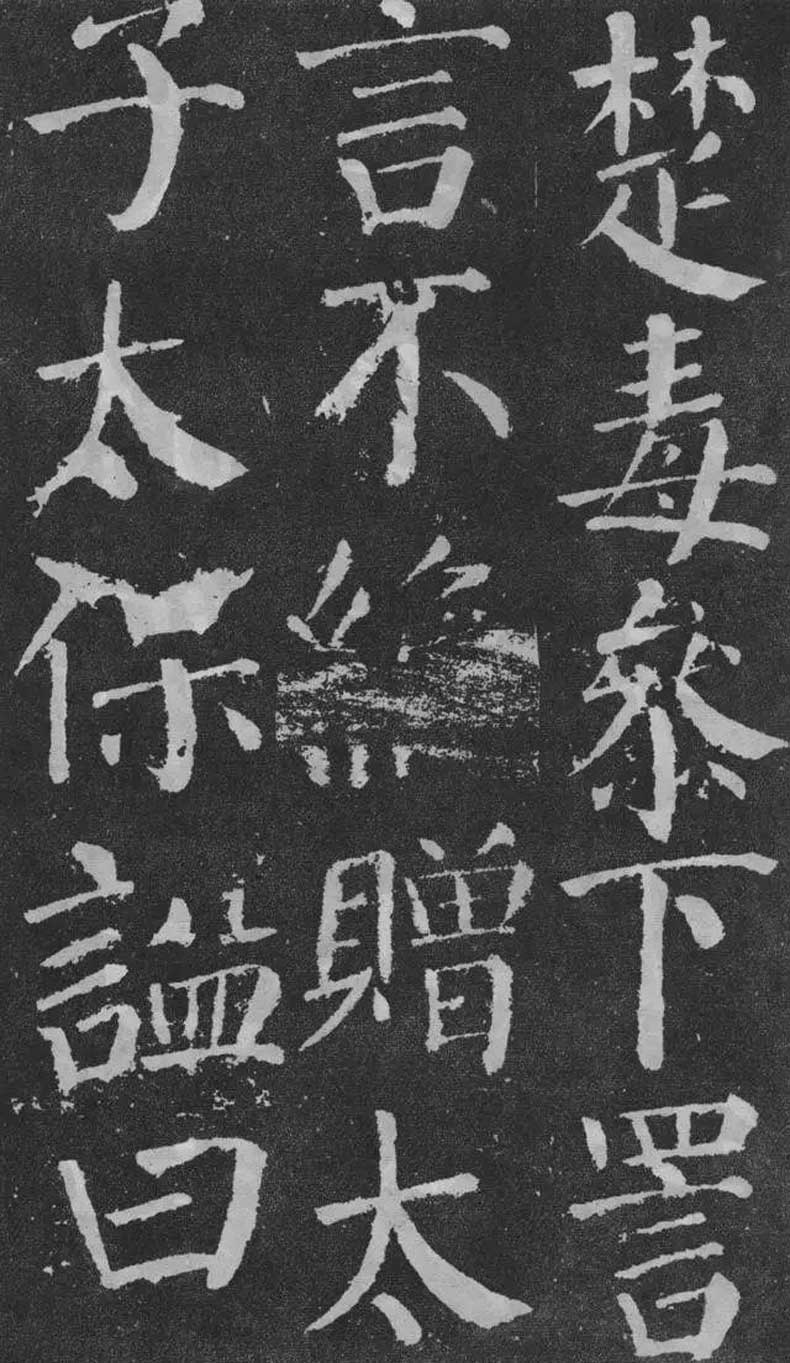 楚毒參下詈
言不絕贈太
子太保謚曰